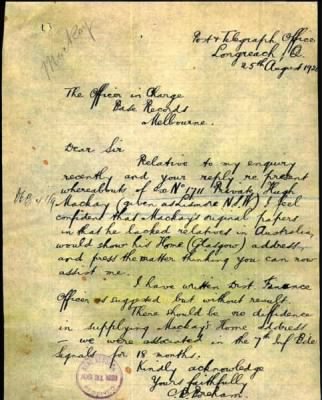 Mackay
Post & Telegraph Office
Longreach, Q.
25th August 1920
The Officer in Charge
Base Records
Melbourne.
Dear Sir
Relative to my enquiry
recently and your reply re present
whereabouts of Ex No 1711 Private Hugh
Mackay (given as N.S.W.) I feel
confident that Mackay's original papers
in that he lacked relatives in Australia,
would show his Home (Glasgow) address,
and press the matter thinking you can now
assist me.
I have written Dist. Finance
Officer as suggested but without result.
There should be no diffidence
in supplying Mackay's Home address
we were associated in the 7th Inf Bde
Signals for 18 months.
Kindly acknowledge
Yours faithfully